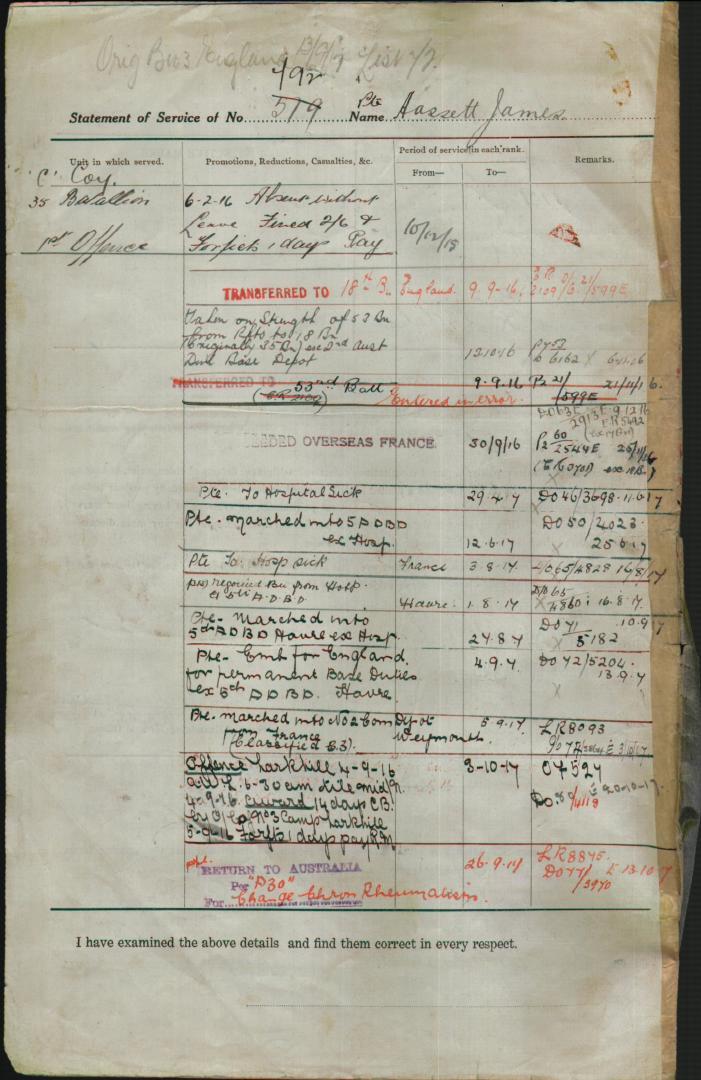 Orig Bn 3 England List
492
Pte
Statement of Service of No. 519 Name Hassett James
Unit in which served.
Promotions, Reductions, Casualties, &c.
Period of service in each rank.
From—
To—
Remarks.
'C' Coy.
35 Batallion
1st Offence
6-2-16 Absent without
Leave Fined 2/6 &
Forfeits 1 days Pay
10/12/15
TRANSFERRED TO 18th Bn England. 9-9-16.
2109 599E
Taken on Strength of 53 Bn
from Rfts to 18 Bn
(Originally 35 Bn) ex 2nd Aust
Divl Base Depot
12.10.16
6162 X
TRANSFERRED TO 53rd Batt
9.9.16 P2 21/ 21/11/16.
599E
Entered in error.
DO63E 9.12.16
2913E
ER5492
PROCEEDED OVERSEAS FRANCE
30/9/16
P2 60/2544E
Pte. To Hospital Sick 29.4.17 DO46/3698.11.6.17
Pte. marched into 5 ADBD
ex Hosp. 12.6.17
DO50/4023.
25.6.17
Pte To Hosp sick France 3.8.17 DO65/4829 16/8/17
Pte rejoined Bn from Hosp.
ex 5th A.D.B.D Havre. 1.8.17
DO65
4860 16.8.17.
Pte- Marched into
5th ADBD Havre ex Hosp. 27.8.17
DO71 10.9.17
X 5182
Pte- Emb for England.
for permanent Base Duties
ex 5th ADBD. Havre.
4.9.17
DO72/5204.
13.9.17
X
Pte. marched into No 2 Com Depot
from France Weymouth.
(Classified B.3).
5.9.17
LR8093
Offence Larkhill 4-9-16
AWL. 6-30 am till midn.
4-9-16. Award 14 days CB.
by O/C No 3 Camp Larkhill
5-9-16 Forfts 1 days pay R.M
3-10-17
04527
20-10-17.
Pte.
RETURN TO AUSTRALIA
Per "A30"
For Change Chron Rheumatism.
26.9.17
LR8875.
DO77/3970 13.10.17
I have examined the above details and find them correct in every respect.